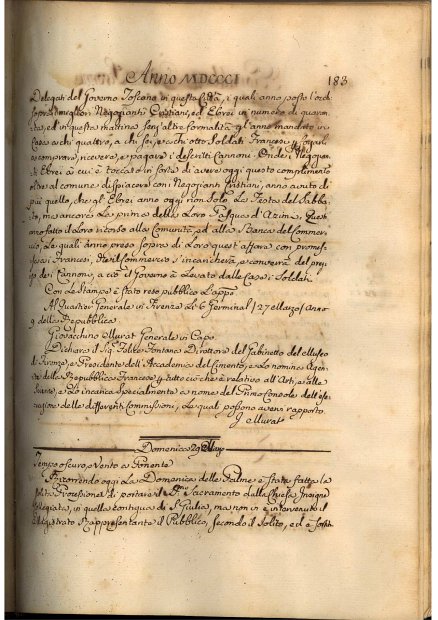 Anno MDCCCI
183
Delegati del Governo Toscano in questa Città, i quali anno posto l'ordi
sopra i migliori Negozianti Cristiani, ed Ebrei in numero di quaran
ta, ed in questa mattina senz'altre formalità gl'anno mandato in
Casa a chi quattro, a chi sei, e a chi otto Soldati Francesi,
a comprare, ricevere, e pagare i descritti Cannoni. Onde i Negozian
ti Ebrei a cui è toccato in sorte di avere oggi questo complimento
oltre al comune dispiacere con i Negozianti Cristiani, anno avuto di
più quello, che gl'Ebrei anno oggi non solo la Festa del Sabba
to, ma ancora la prima della Loro Pasqua d'Azime. Questi
anno fatto il Loro intenso alla Comunità, ed alla Banca del Commer
cio, la quali anno preso sopra di Loro quest'affare con promes
sa ai Francesi, che il Commercio s'incaricherà, e converrà del prez
zo dei Cannoni, e ciò il Governo à Levato dalle Case i Soldati.
Con le Stampe è stato reso pubblico L'app.
Al Quartier Generale in Firenze Le 6 Germinal /27 Marzo/ Anno
9 della Repubblica
Giovacchino Murat Generale in Capo
Dichiara il Sig. Felice Fontana Direttore del Gabinetto del Museo
di Firenze, e Presidente dell'Accademia del Cimento, e Lo nomina Agen
te della Repubblica Francese p. tutto ciò che è relativo all'Arti, e alle
Scienze, e Lo incarica specialmente a nome del Primo Console dell'ese
cuzione delle differenti Commissioni, Le quali possono avervi rapporto
J. Murat
Domenica 29 Marzo
Tempo oscuro, Vento a Ponente
Ricorrendo oggi La Domenica delle Palme è stata fatta la
solita Processione di portare il SS.mo Sacramento dalla Chiesa Insigne
Collegiata, in quella contigua di S. Giulia, ma non vi è intervenuto il
Magistrato Rappresentante il Pubblico, secondo il Solito, ed è